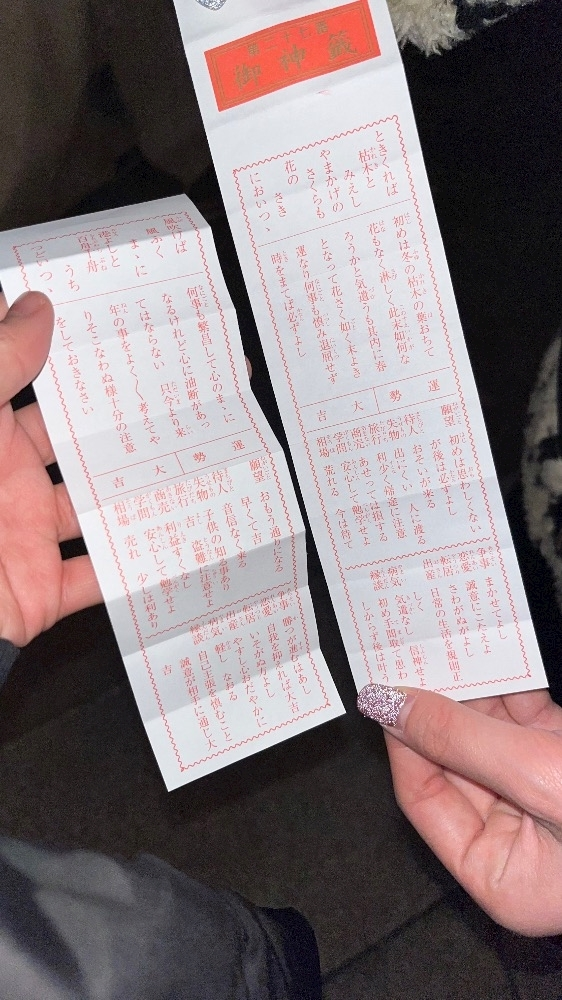 御神籤
ときくれば
枯木と
みえし
やまかげの
さくらも
花の さき
においつゝ
初めは冬の枯木の葉おちて
花もなく淋しく此末如何な
ろうかと気遣うも其内に春
となって花さく如く末よき
運なり何事も慎み退屈せず
時をまてば必ずよし
運勢 大吉
願望 初めは思わしくない
が後は必ずよし
待人 おそいが来る
失物 出にくい 人に渡る
旅行 利少く帰途に注意
商売 あせっては損する
学問 安心して勉学せよ
相場 荒れる 今は待て
争事 まかせてよし
恋愛 誠意にこたえよ
転居 さわがぬがよし
出産 日常の生活を規則正
しく
病気 気遣なし 信神せよ
縁談 初め手間取り思わ
しからず後は叶う
風吹けば
風ふく
まゝに
港よしと
うち
百舟千舟
つどいつゝ
何事も繁昌して心のまゝに
なるけれど心に油断があっ
てはならない 只今より来
年の事をよくよく考えてや
りそこなわぬ様十分の注意
をしておきなさい
運勢 大吉
願望 おもう通になる
早くて吉
待人 音信なく来る
失物 子供の知事あり
旅行 吉 盗難に注意せよ
商売 利益すくなし
学問 安心して勉学せよ
相場 売れ 少し利あり
争事 勝つが進むはあし
恋愛 自我を抑えれば大吉
転居 いそがぬがよし
出産 やすし心おだやかに
病気 軽し なおる
自己主張を慎むこと
縁談 誠意が相手に通じ大
吉